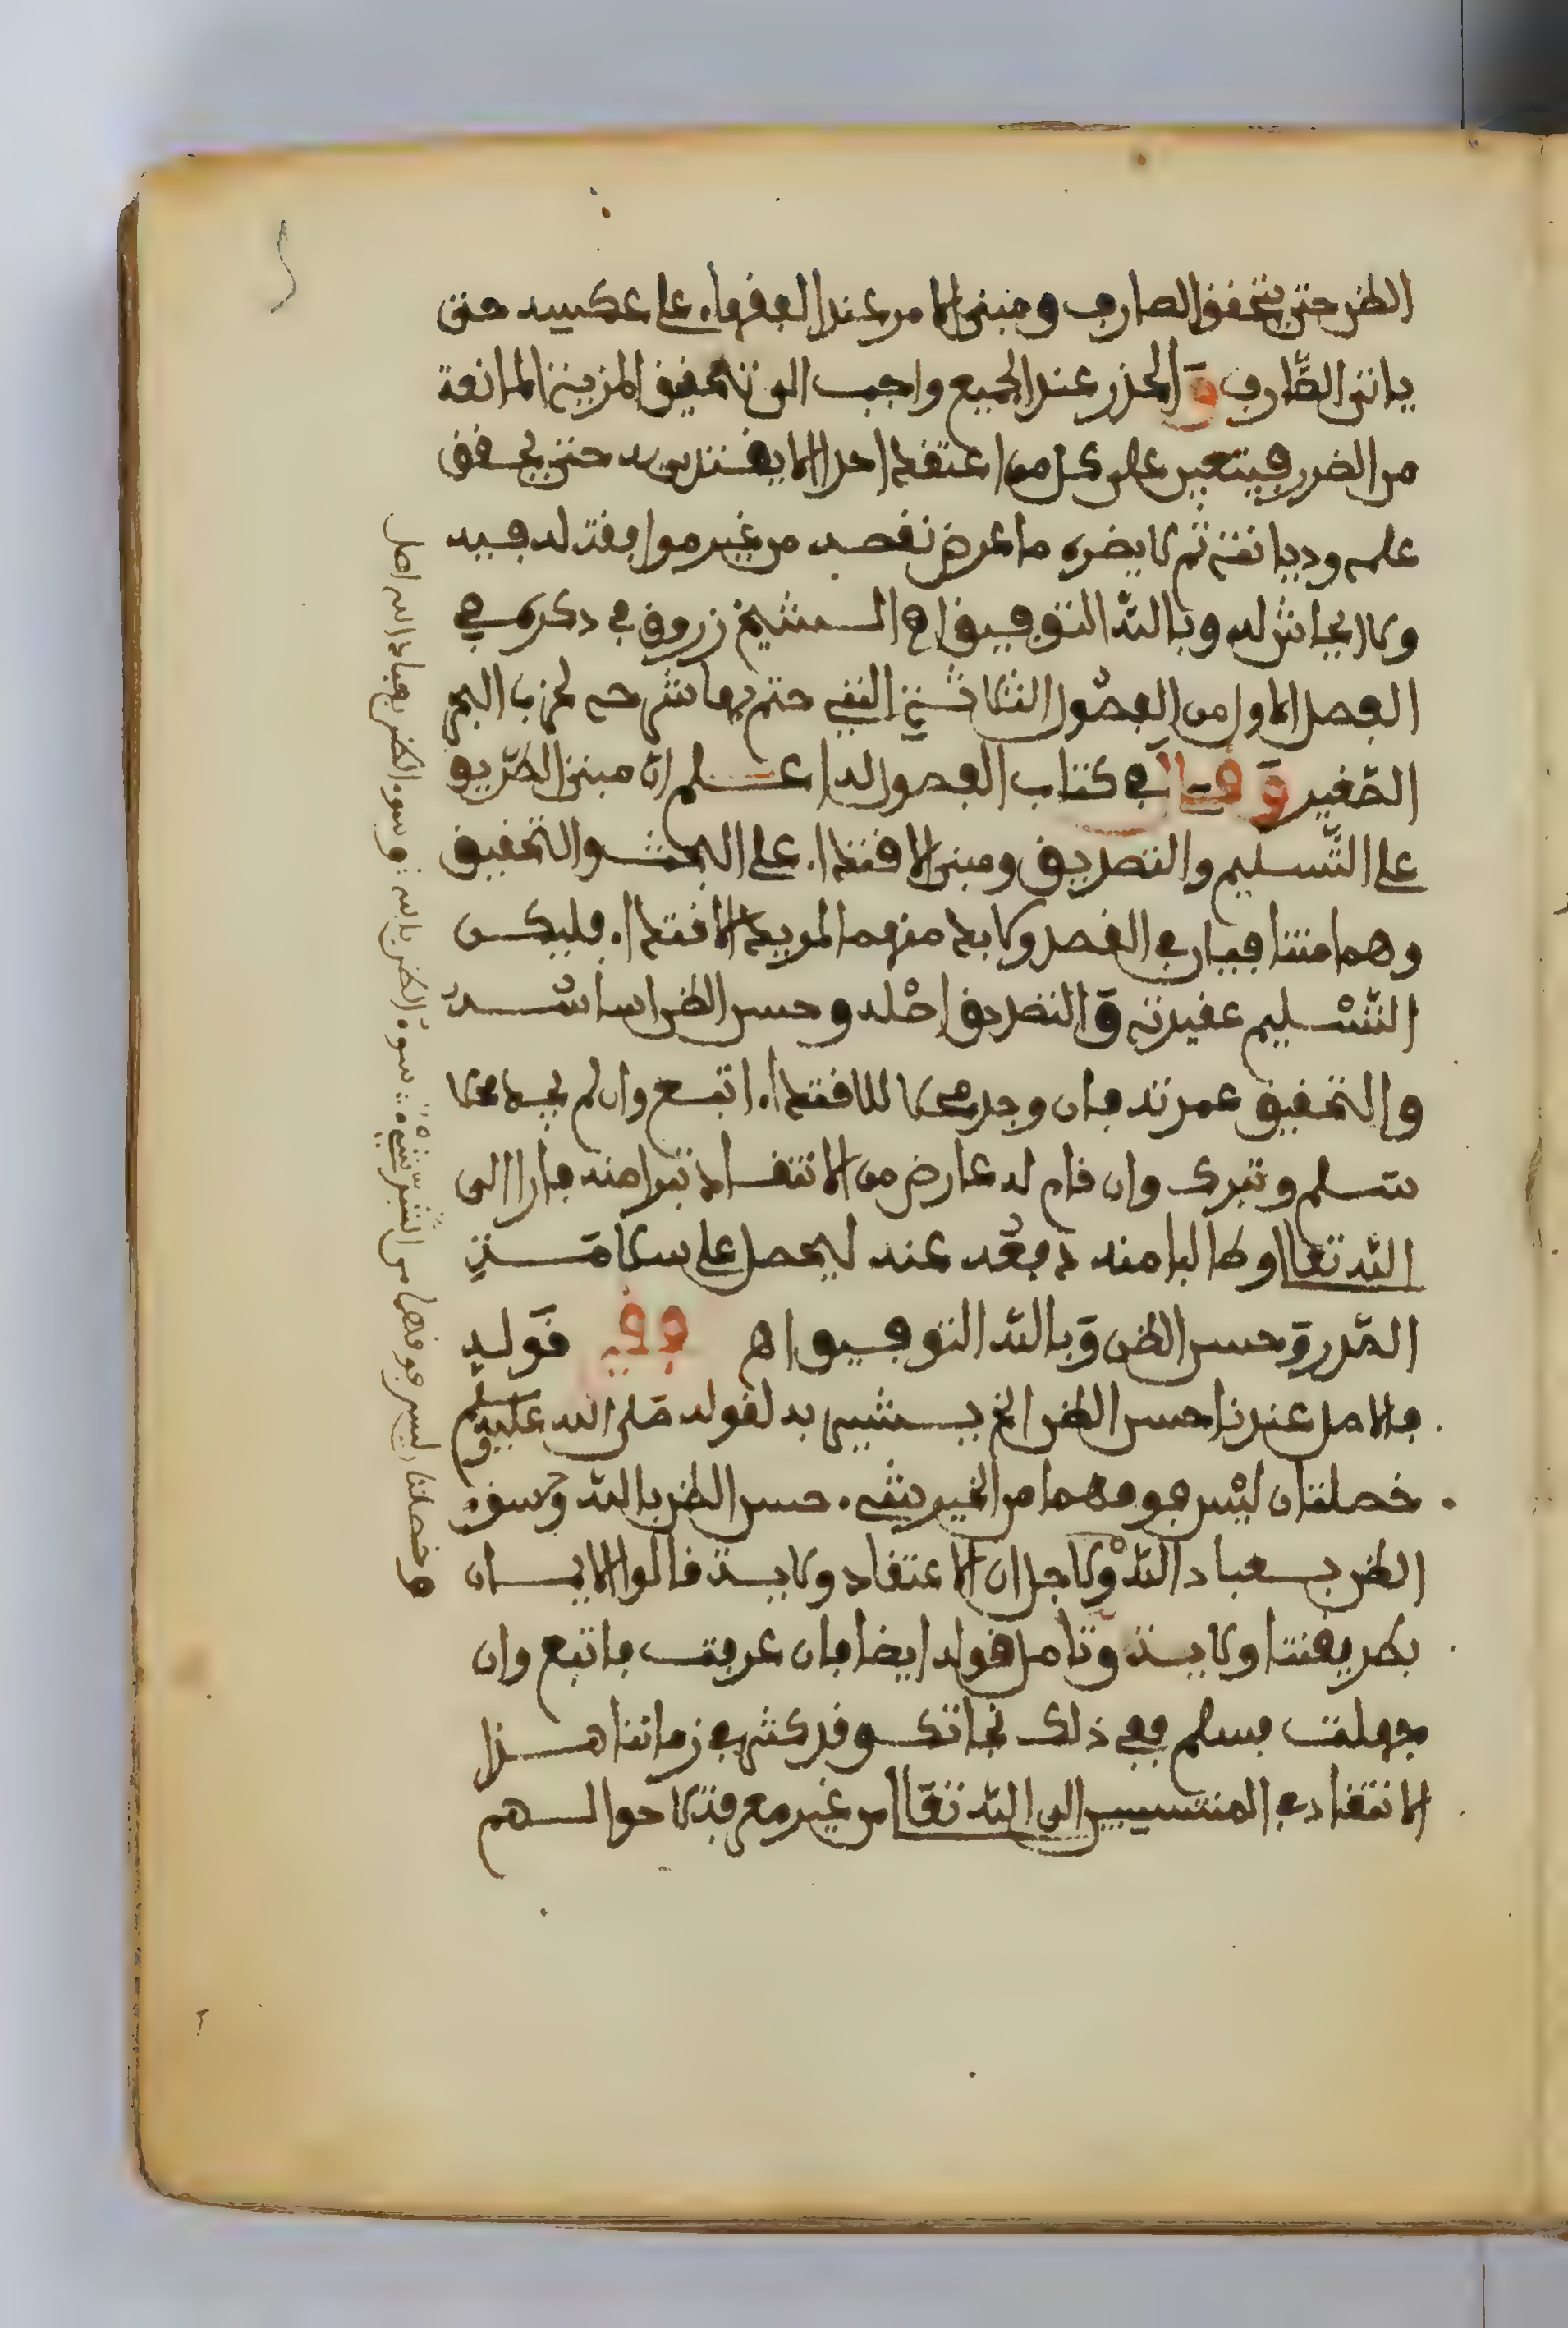 الظن حتى يتحقق الصارف ومبنى الامر عند الفقهاء على عكسه حتى
ياتى الصَّارف وَالحذر عند الجميع واجب الى تحقيق المزية المانعة
من الضرر فيتعين على كل من اعتقد احدا الا يقتدى به حتى يحقق
علمه وديانته ثم لا يضره ما عرض نفصه من غير موافقة له فيه
ولا ايحاش له وبالله التوفيق اه الشيخ زروق في ذكره في
الفصل الاول من الفصُول الثلاثة التي ختم بها شرحه لحزب البحر
الصّغير وَقال في كتاب الفصول له اعلم ان مبنى الطّريق
على التّسليم والتصديق ومبنى الاقتداء على البحث والتحقيق
وهما متنافيان في القصد ولا بد منهما لمريد الاقتداء فليكن
التسْليم عقيدته وَالتصديق اصْله وحسن الظن اساسه
والتحقيق عمدته فان وجد محلا للاقتداء اتبع وان لم يجد محلا
سلم وتبرك وان قام له عارض من الانتقاد تبرا منه فارا الى
الله تعالى وطالبا منه دفعُه عنه ليحصل على سلامَة
الصّدر وَحسن الظن وَبالله التوفيق اه وفي قَوله
فالاصل عندنا حسن الظن الخ يشير به لقوله صَلى الله عَليه وسلم
خصلتان ليْس فوقهما من الخير شيء حسن الظن بالله وحسن
الظن بعباد اللهْ ولاجل ان الاعتقاد ولاية قالوا الايمان
بطريقتنا ولاية وتامل قوله ايضا فان عرفت فاتبع وان
جهلت فسلم ففي ذلك نجاتك وقد كثر في زماننا هذا
الانتقاد في المنتسبين الى الله تعَالى من غير معرفة لاحوالهم
وخصلتان ليس فوقهما من الشر شيء سوء الظن بالله وسوء الظن بعباد الله اصل